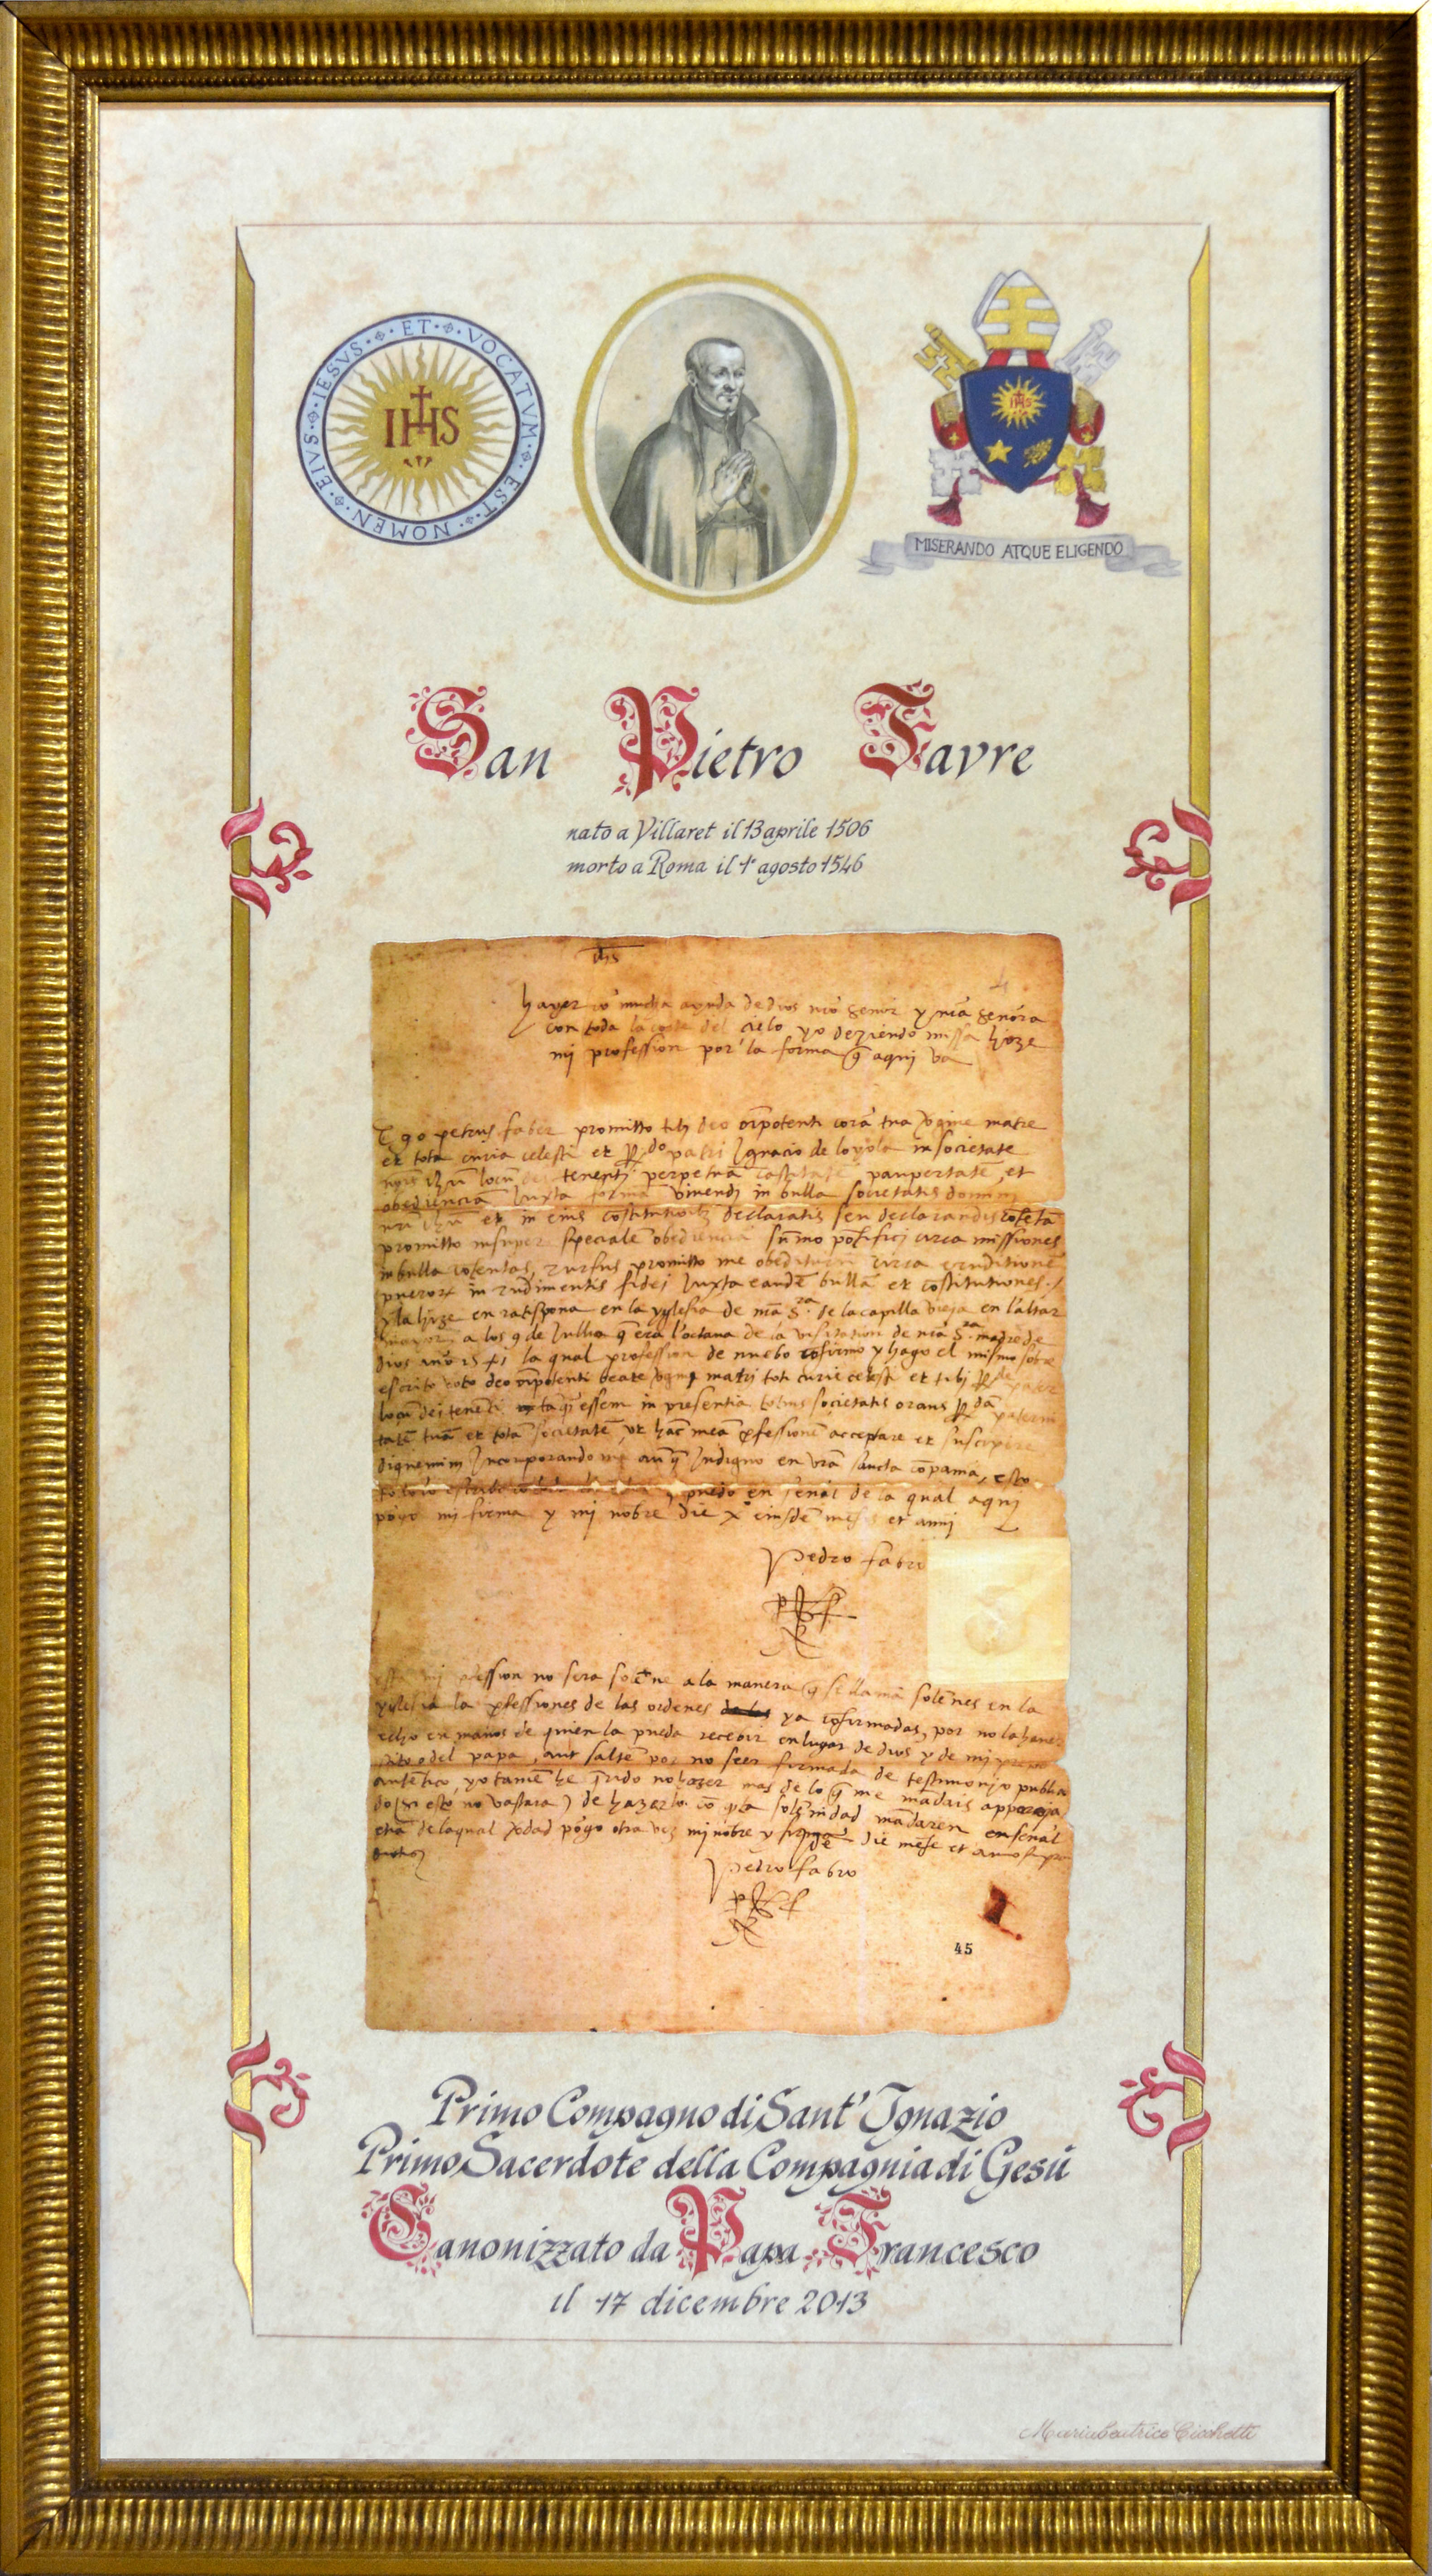 IESVS · ET · VOCATVM · EST · NOMEN · EIVS
IHS
IHS
MISERANDO ATQUE ELIGENDO
San Pietro Favre
nato a Villaret il 13 aprile 1506
morto a Roma il 1° agosto 1546
ihs
hayer cō mucha ayuda de dios nrō señor y nrā señora
con toda la corte del cielo yo deziendo missa hize
mi profession por la forma q̄ aqui va
Ego petrus faber promitto tibi deo oīpotenti corā tua vgine matre
et tota curia celesti et
patri Ignacio de loyola in societate
tenenti perpetuā castitatē paupertatē et
obediencia Juxta formā vivendi in bulla societatis domini
et in eius costitutioīb declaratis seu declarandis cōtētā
promitto insuper speciale obediencia sūmo pōtifici circa missiones
in bulla cōtentas, rursus promitto me obediturū circa eruditionē
in rudimentis fidei Juxta eandē bullā et costitutiones
la hize en ratispona en la yglesia de nrā Sra. de la capilla vieja en l'altar
a los 9 de Jullio q̄ era l'octava de la visitation de nrā Sra madre de
dios la qual profession de nuebo cōfirmo y hago el mismo
escrito voto deo oīpotenti matri toti curie celesti et tibi
locū dei tenēti essem in presentia totius societatis orans
tatē tuā et totā societatē, ut hāc meā pfessionē acceptare et suscipere
dignemini Incorporando me Indigno en vrā sancta cōpania, esto
en señal de la qual aqui
pōgo mi firma y mi nōbre die X eiusdē mesis et anni
Pedro fabro
mi pfession no sera solēne a la manera q̄ se llamā solēnes en la
yglesia la pfessiones de las ordenes ya cōfirmadas, por no la haver
echo en manos de quien la pueda recebir en lugar de dios y de mi
o del papa, aut saltē por no seer firmada de testimonio publico
autētico, yo tamē he no hazer mas de lo q̄ me mādais
(si esto no bastara) de hazerlo cō solēnidad mādaren en señal
de la qual pōgo otra vez mi nōbre y firma die mēse et anno
Pedro fabro
45
Primo Compagno di Sant' Ignazio
Primo Sacerdote della Compagnia di Gesù
Canonizzato da Papa Francesco
il 17 dicembre 2013
Mariabeatrice Cicchetti